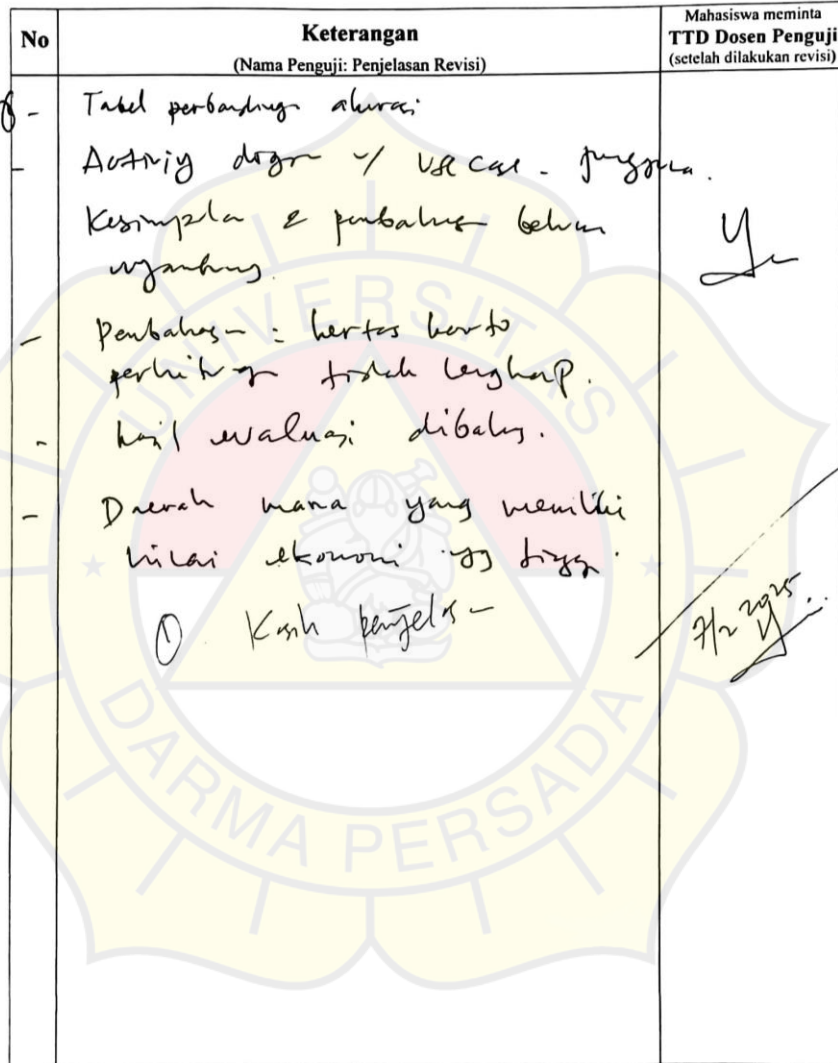 No
Keterangan
(Nama Penguji: Penjelasan Revisi)
Mahasiswa meminta
TTD Dosen Penguji
(setelah dilakukan revisi)
- Tabel perbandingan akurasi
- Activity dogrm Use case -
Kesimpulan & pembahasan belum
nyambung.
- Pembahasan : kertas
perhitungan tidak lengkap.
- hasil evaluasi dibahas.
- Daerah mana yang memiliki
nilai ekonomi yg tinggi.
① Kasih penjelasan
7/2 2025
UNIVERSITAS
DARMA PERSADA